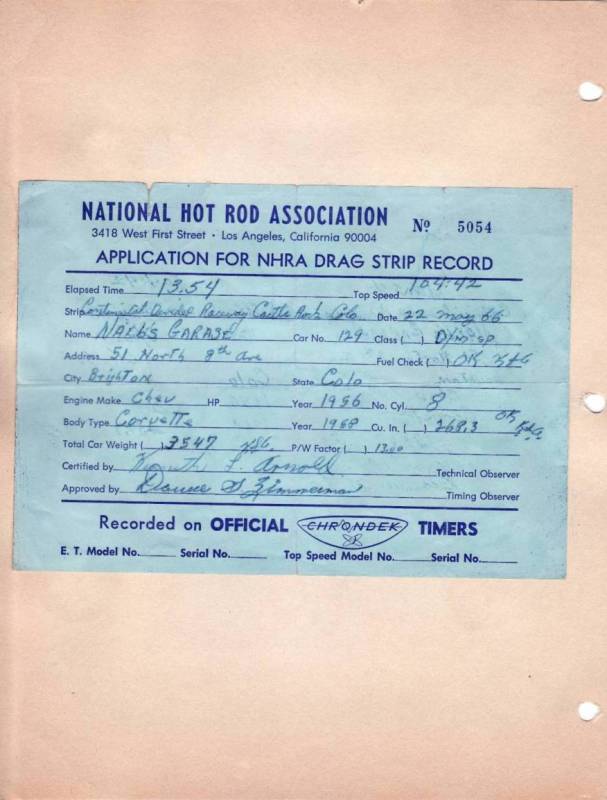 NATIONAL HOT ROD ASSOCIATION
Nº 5054
3418 West First Street • Los Angeles, California 90004
APPLICATION FOR NHRA DRAG STRIP RECORD
Elapsed Time 13.54 Top Speed 104.42
Strip Continental Divide Raceway Castle Rock Colo. Date 22 may 66
Name GARAGE Car No. 129 Class ( )
Address 51 North 8th Ave Fuel Check ( ) OK
City Brighton State Colo
Engine Make Chev HP Year 1956 No. Cyl. 8
Body Type Corvette Year 1958 Cu. In. ( ) 268.3 OK
Total Car Weight ( ) 3547 P/W Factor ( ) 13.00
Certified by Kenneth L. Arnold Technical Observer
Approved by S Zimmerman Timing Observer
Recorded on OFFICIAL CHRONDEK TIMERS
E. T. Model No. Serial No. Top Speed Model No. Serial No.